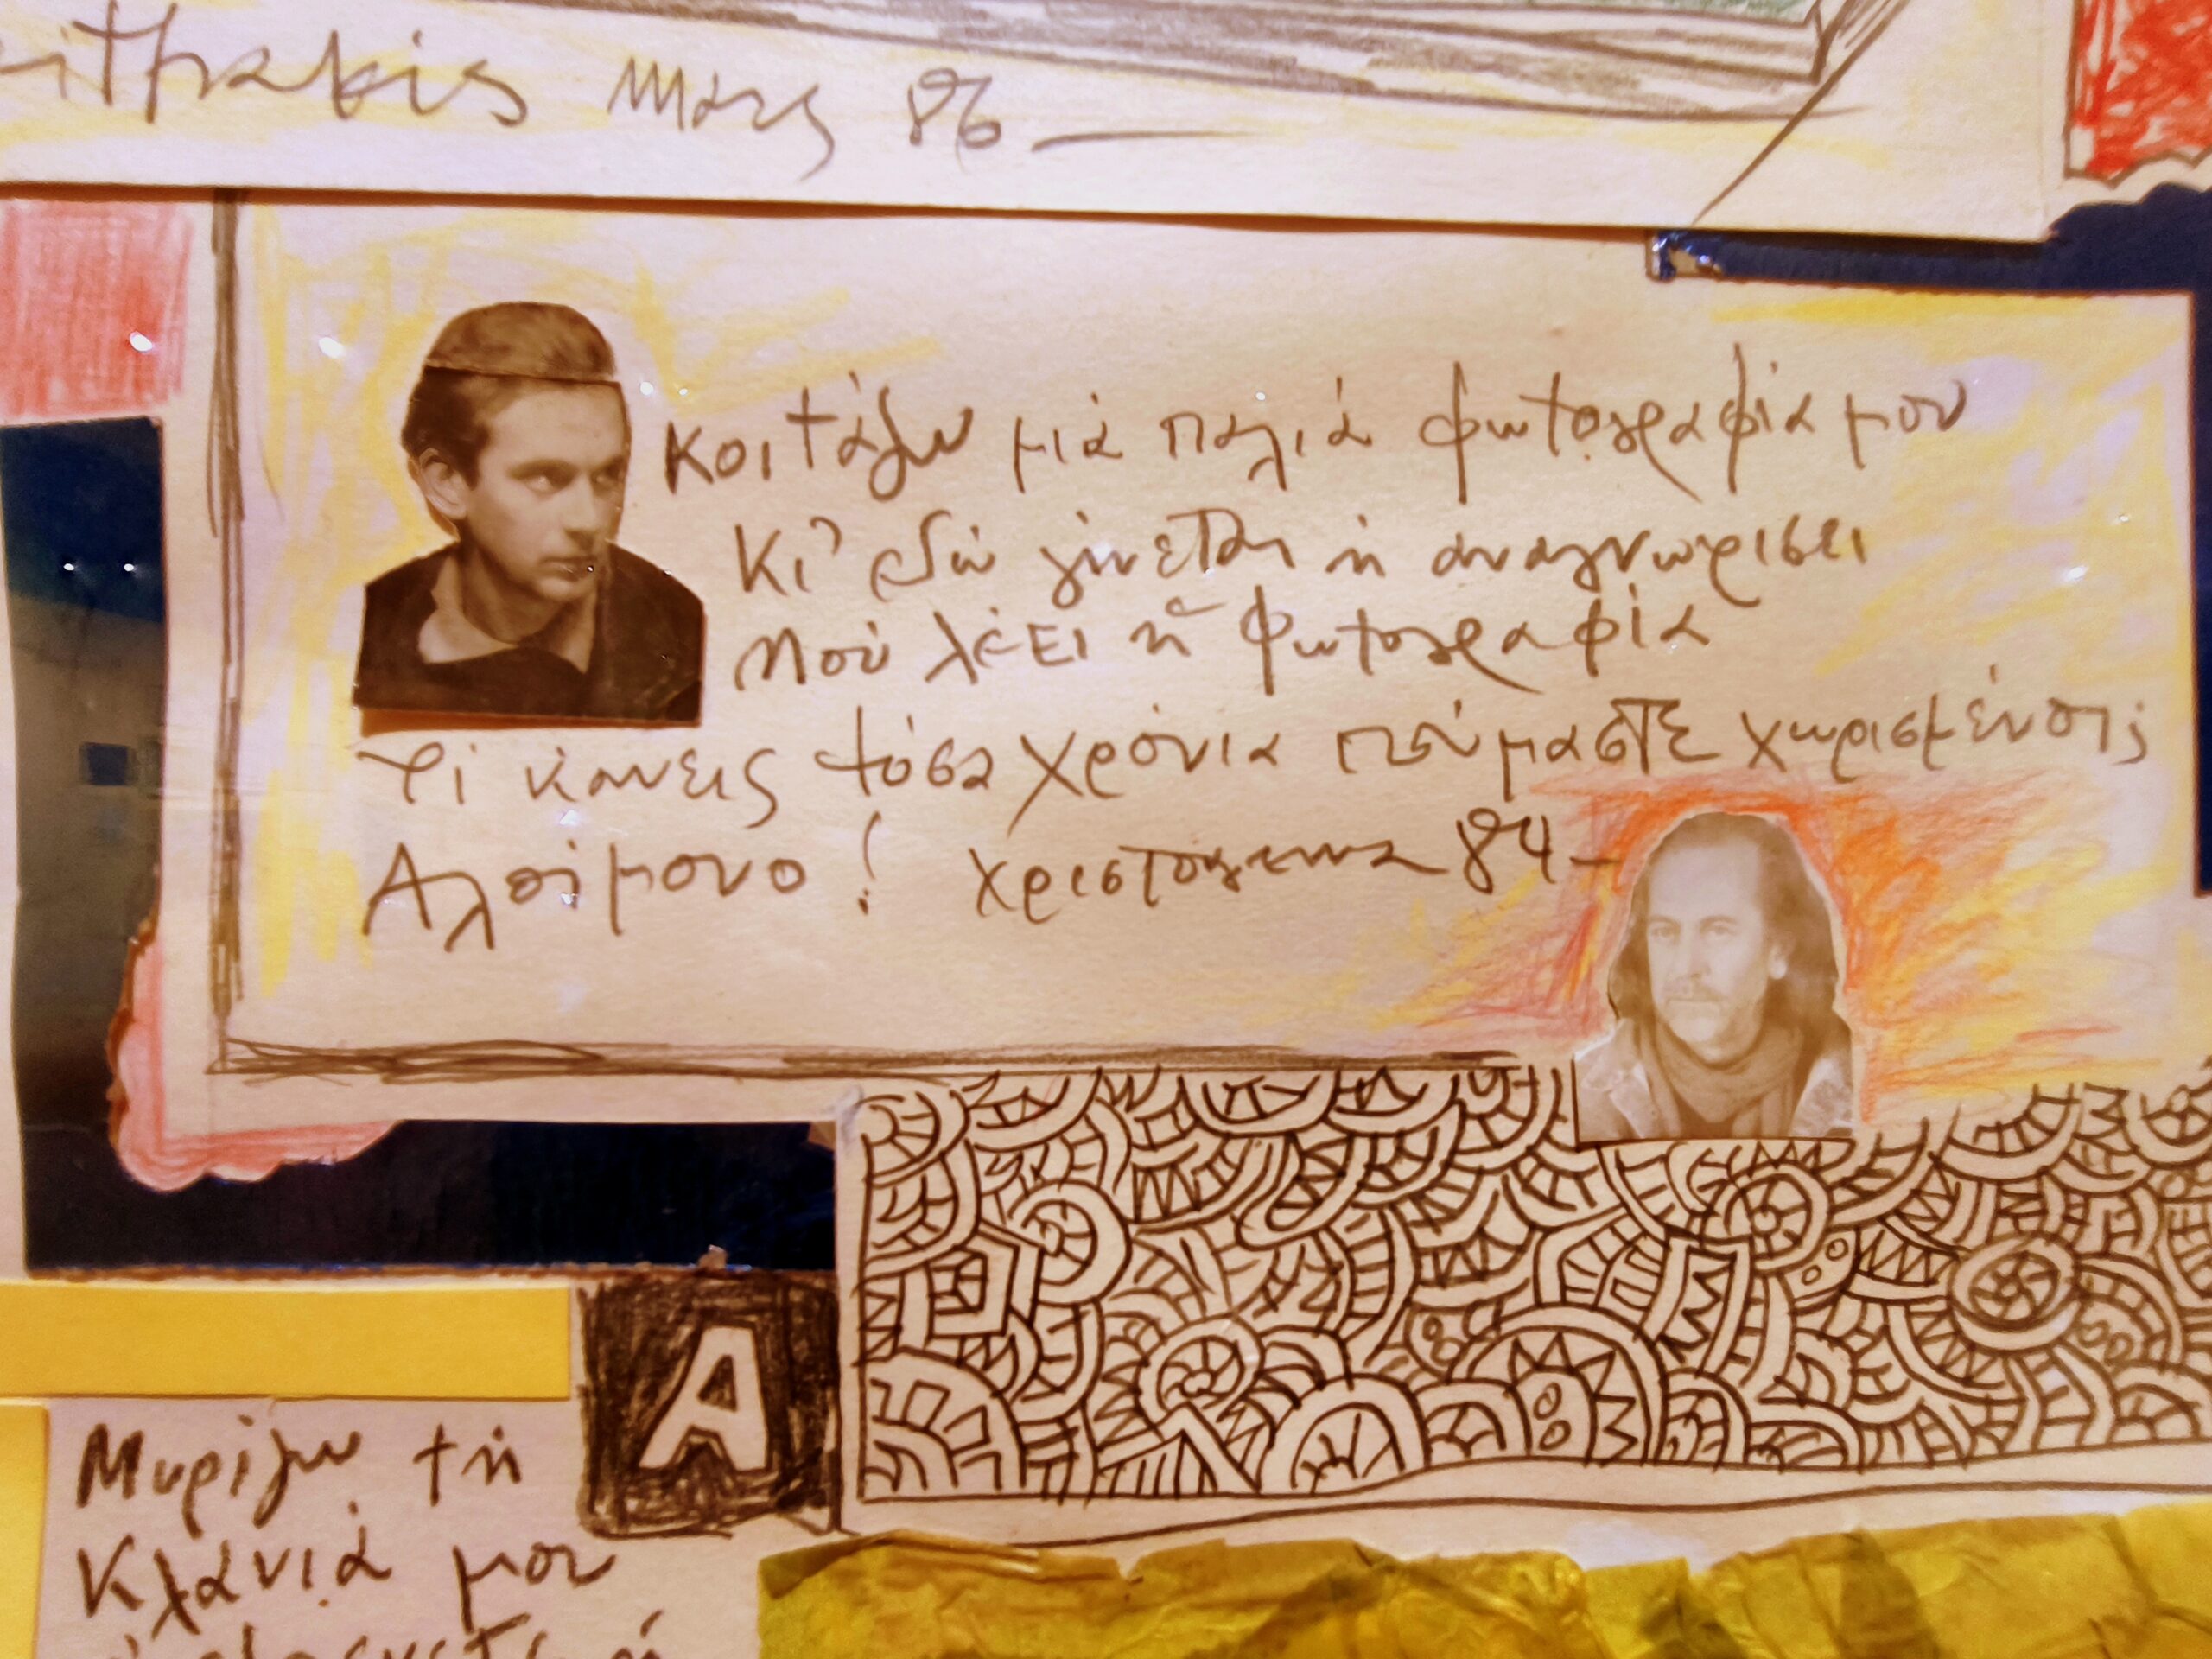 März 86
κοιτάζω μιά παλιά φωτογραφία μου
κι' εδώ γίνεται ἡ αναγνωρισει
πού λέει ἡ φωτογραφία
Τί κάνεις τόσα χρόνια πούμαστε χωρισμένοι;
Αλοίμονο! Χριστουγεννα 84-
A
Μυρίζω τή
κλανιά μου